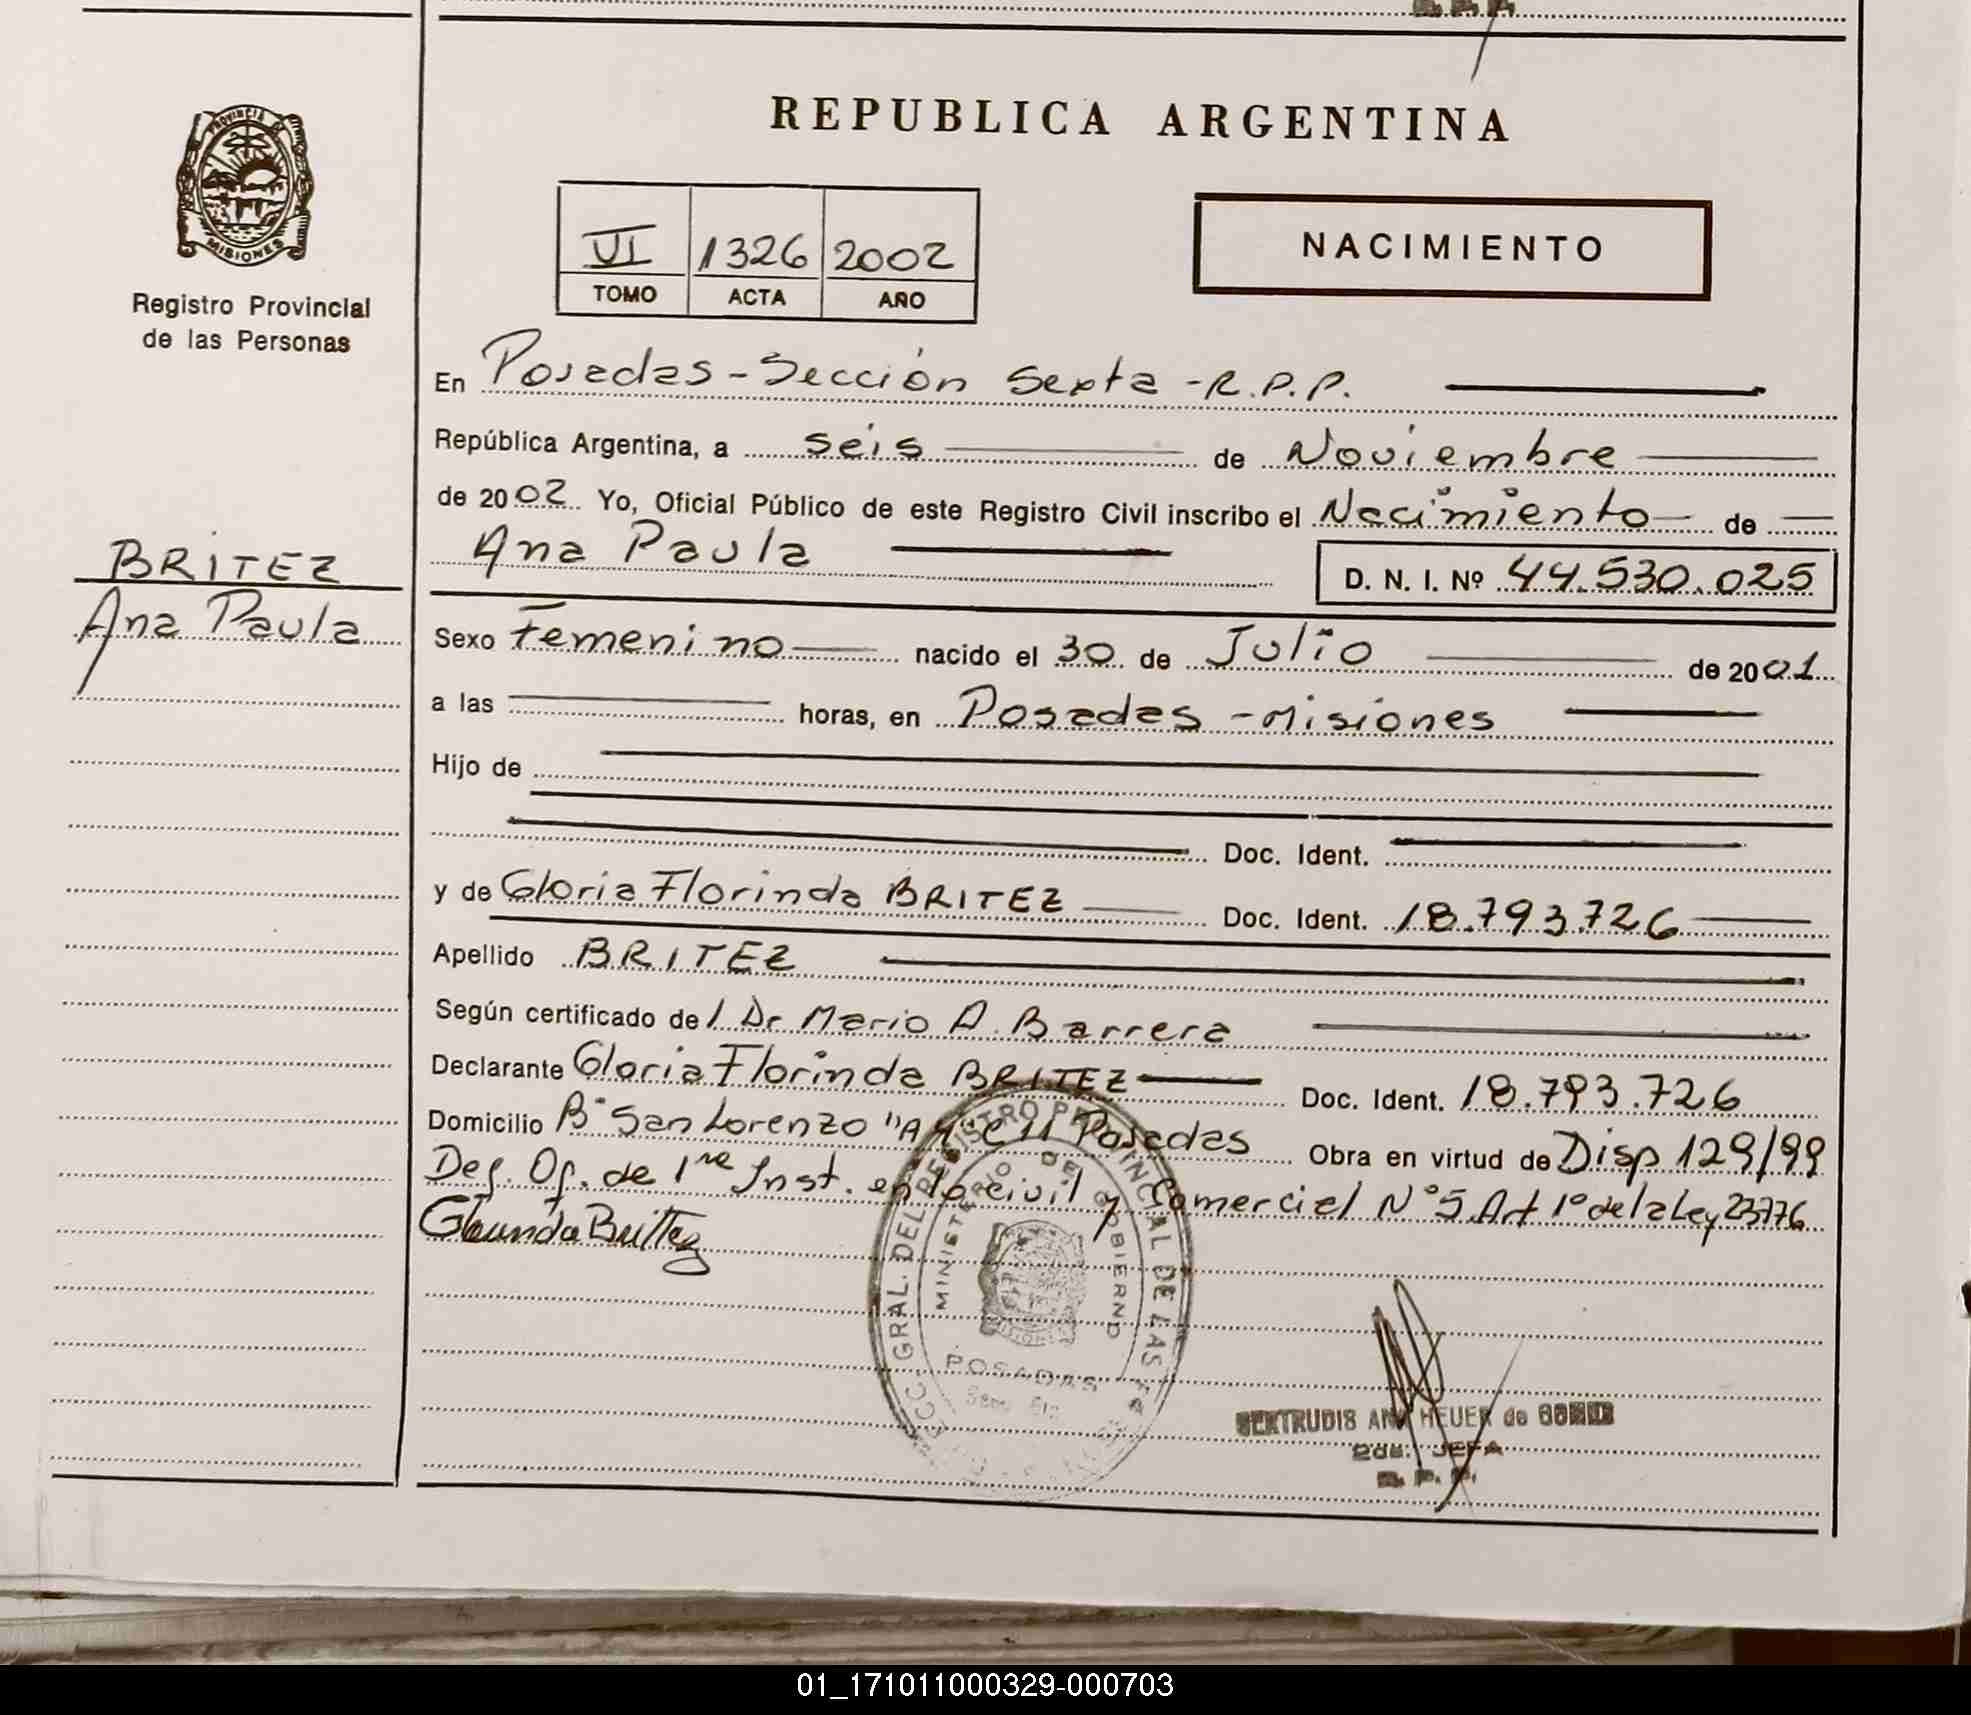 REPUBLICA ARGENTINA
PROVINCIA DE
MISIONES
Registro Provincial
de las Personas
VI 1326 2002
TOMO ACTA AÑO
NACIMIENTO
En Posadas - Sección Sexta - R.P.P.
República Argentina, a seis de Noviembre
de 2002 Yo, Oficial Público de este Registro Civil inscribo el Nacimiento de
Ana Paula D. N. I. Nº 44.530.025
BRITEZ
Ana Paula
Sexo Femenino nacido el 30 de Julio de 2001
a las horas, en Posadas - Misiones
Hijo de
Doc. Ident.
y de Gloria Florinda BRITEZ Doc. Ident. 18.793.726
Apellido BRITEZ
Según certificado de l Dr Mario A. Barrera
Declarante Gloria Florinda BRITEZ Doc. Ident. 18.793.726
Domicilio Bº San Lorenzo "A 4" C 11 Posadas Obra en virtud de Disp 129/99
Def. Of. de 1ra Inst. en lo civil y Comercial Nº 5 Art 1º de la Ley 23776
DEL REGISTRO PROVINCIAL DE LAS
MINISTERIO DE GOBIERNO
POSADAS
GERTRUDIS ANA HEUER de
2da. JEFA
01_171011000329-000703